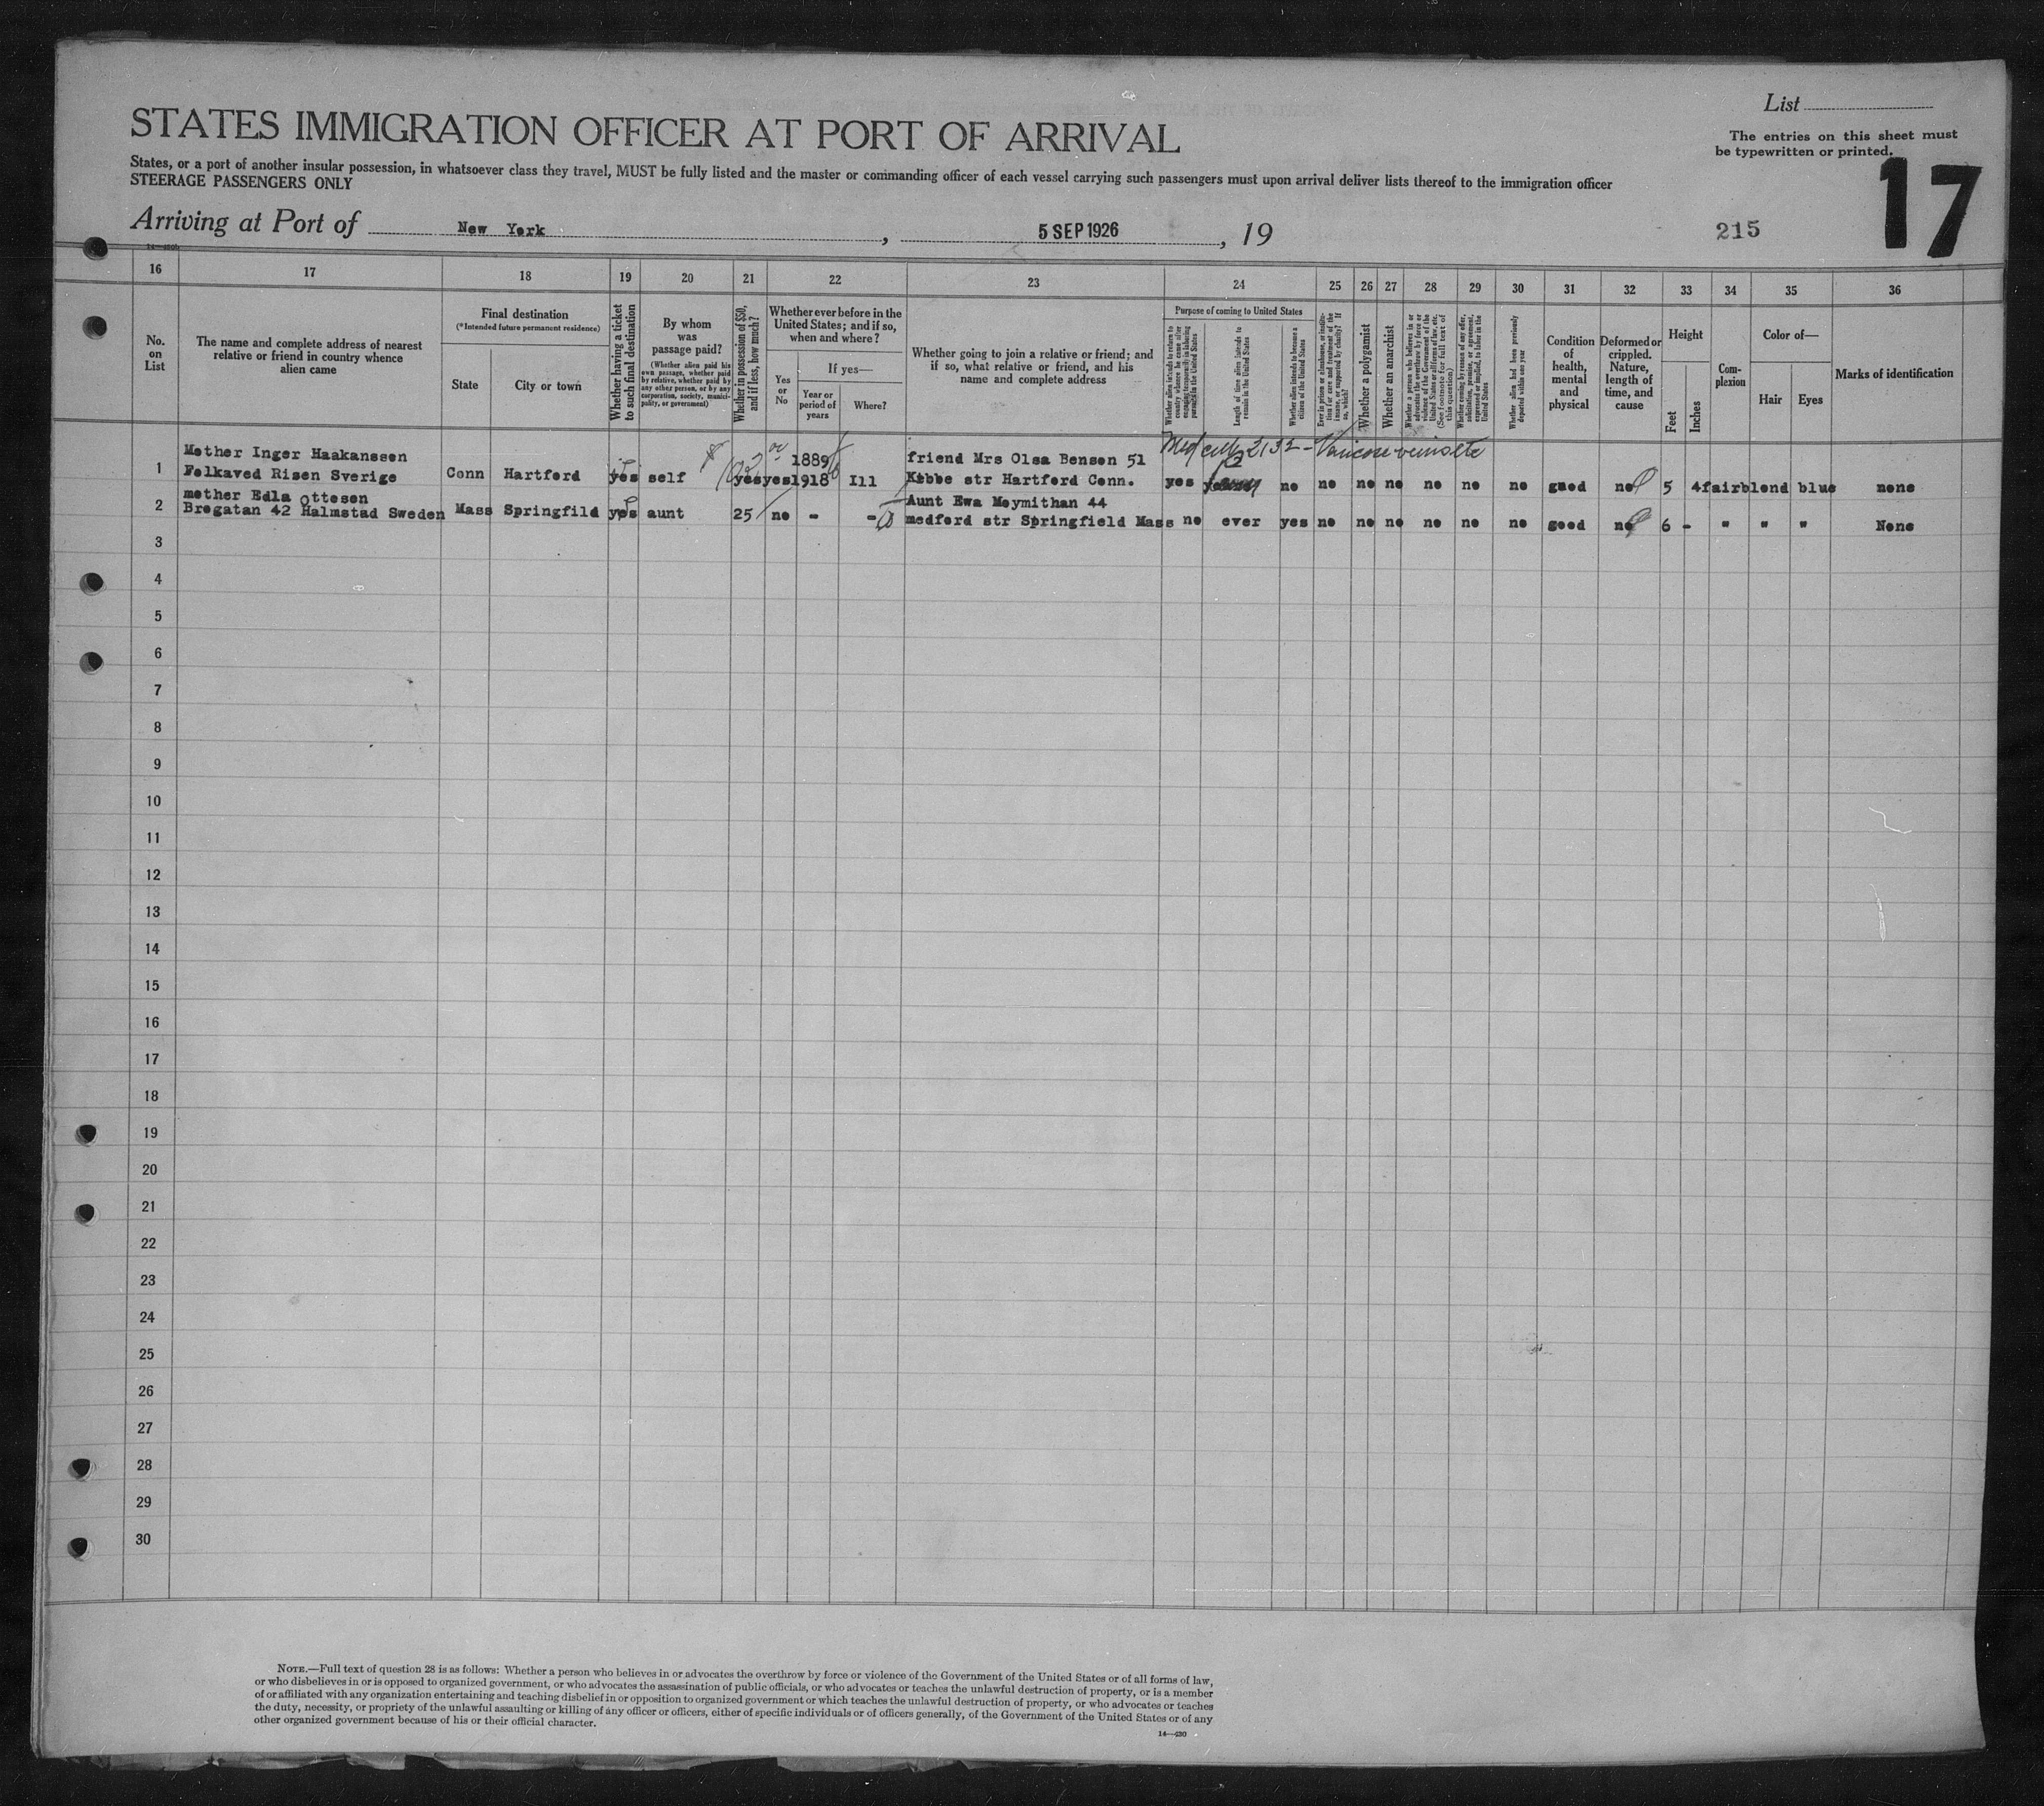 List
The entries on this sheet must
be typewritten or printed.
17
STATES IMMIGRATION OFFICER AT PORT OF ARRIVAL
States, or a port of another insular possession, in whatsoever class they travel, MUST be fully listed and the master or commanding officer of each vessel carrying such passengers must upon arrival deliver lists thereof to the immigration officer
STEERAGE PASSENGERS ONLY
Arriving at Port of New York, 5 SEP 1926, 19
215
16 17 18 19 20 21 22 23 24 25 26 27 28 29 30 31 32 33 34 35 36
No.
on
List
The name and complete address of nearest
relative or friend in country whence
alien came
Final destination
(*Intended future permanent residence)
State
City or town
Whether having a ticket
to such final destination
By whom
was
passage paid?
(Whether alien paid his
own passage, whether paid
by relative, whether paid by
any other person, or by any
corporation, society, munici-
pality, or government)
Whether in possession of $50,
and if less, how much?
Whether ever before in the
United States; and if so,
when and where?
Yes
or
No
If yes—
Year or
period of
years
Where?
Whether going to join a relative or friend; and
if so, what relative or friend, and his
name and complete address
Purpose of coming to United States
Whether alien intends to return to
country whence he came after
engaging temporarily in laboring
pursuits in the United States
Length of time alien intends to
remain in the United States
Whether alien intends to become a
citizen of the United States
Ever in prison or almshouse, or institu-
tion for care and treatment of the
insane, or supported by charity? If
so, which?
Whether a polygamist
Whether an anarchist
Whether a person who believes in or
advocates the overthrow by force or
violence of the Government of the
United States or all forms of law, etc.
(See footnote for full text of
this question)
Whether coming by reason of any offer,
solicitation, promise, or agreement,
expressed or implied, to labor in the
United States
Whether alien had been previously
deported within one year
Condition
of
health,
mental
and
physical
Deformed or
crippled.
Nature,
length of
time, and
cause
Height
Feet
Inches
Com-
plexion
Color of—
Hair
Eyes
Marks of identification
Med cert 2132 - Varicose veins etc
Mother Inger Haakanssen 1889 friend Mrs Olsa Benson 51
1 Folkaved Risen Sverige Conn Hartford yes self yes yes 1918 Ill Kibbe str Hartford Conn. yes no no no no no no no good no 5 4 fair blond blue none
mother Edla Ottesen Aunt Ewa Moymithan 44
2 Brogatan 42 Halmstad Sweden Mass Springfild yes aunt 25 no - - medford str Springfield Mass no ever yes no no no no no no good no 6 - " " " None
3
4
5
6
7
8
9
10
11
12
13
14
15
16
17
18
19
20
21
22
23
24
25
26
27
28
29
30
NOTE.—Full text of question 28 is as follows: Whether a person who believes in or advocates the overthrow by force or violence of the Government of the United States or of all forms of law,
or who disbelieves in or is opposed to organized government, or who advocates the assassination of public officials, or who advocates or teaches the unlawful destruction of property, or is a member
of or affiliated with any organization entertaining and teaching disbelief in or opposition to organized government or which teaches the unlawful destruction of property, or who advocates or teaches
the duty, necessity, or propriety of the unlawful assaulting or killing of any officer or officers, either of specific individuals or of officers generally, of the Government of the United States or of any
other organized government because of his or their official character.
14—430